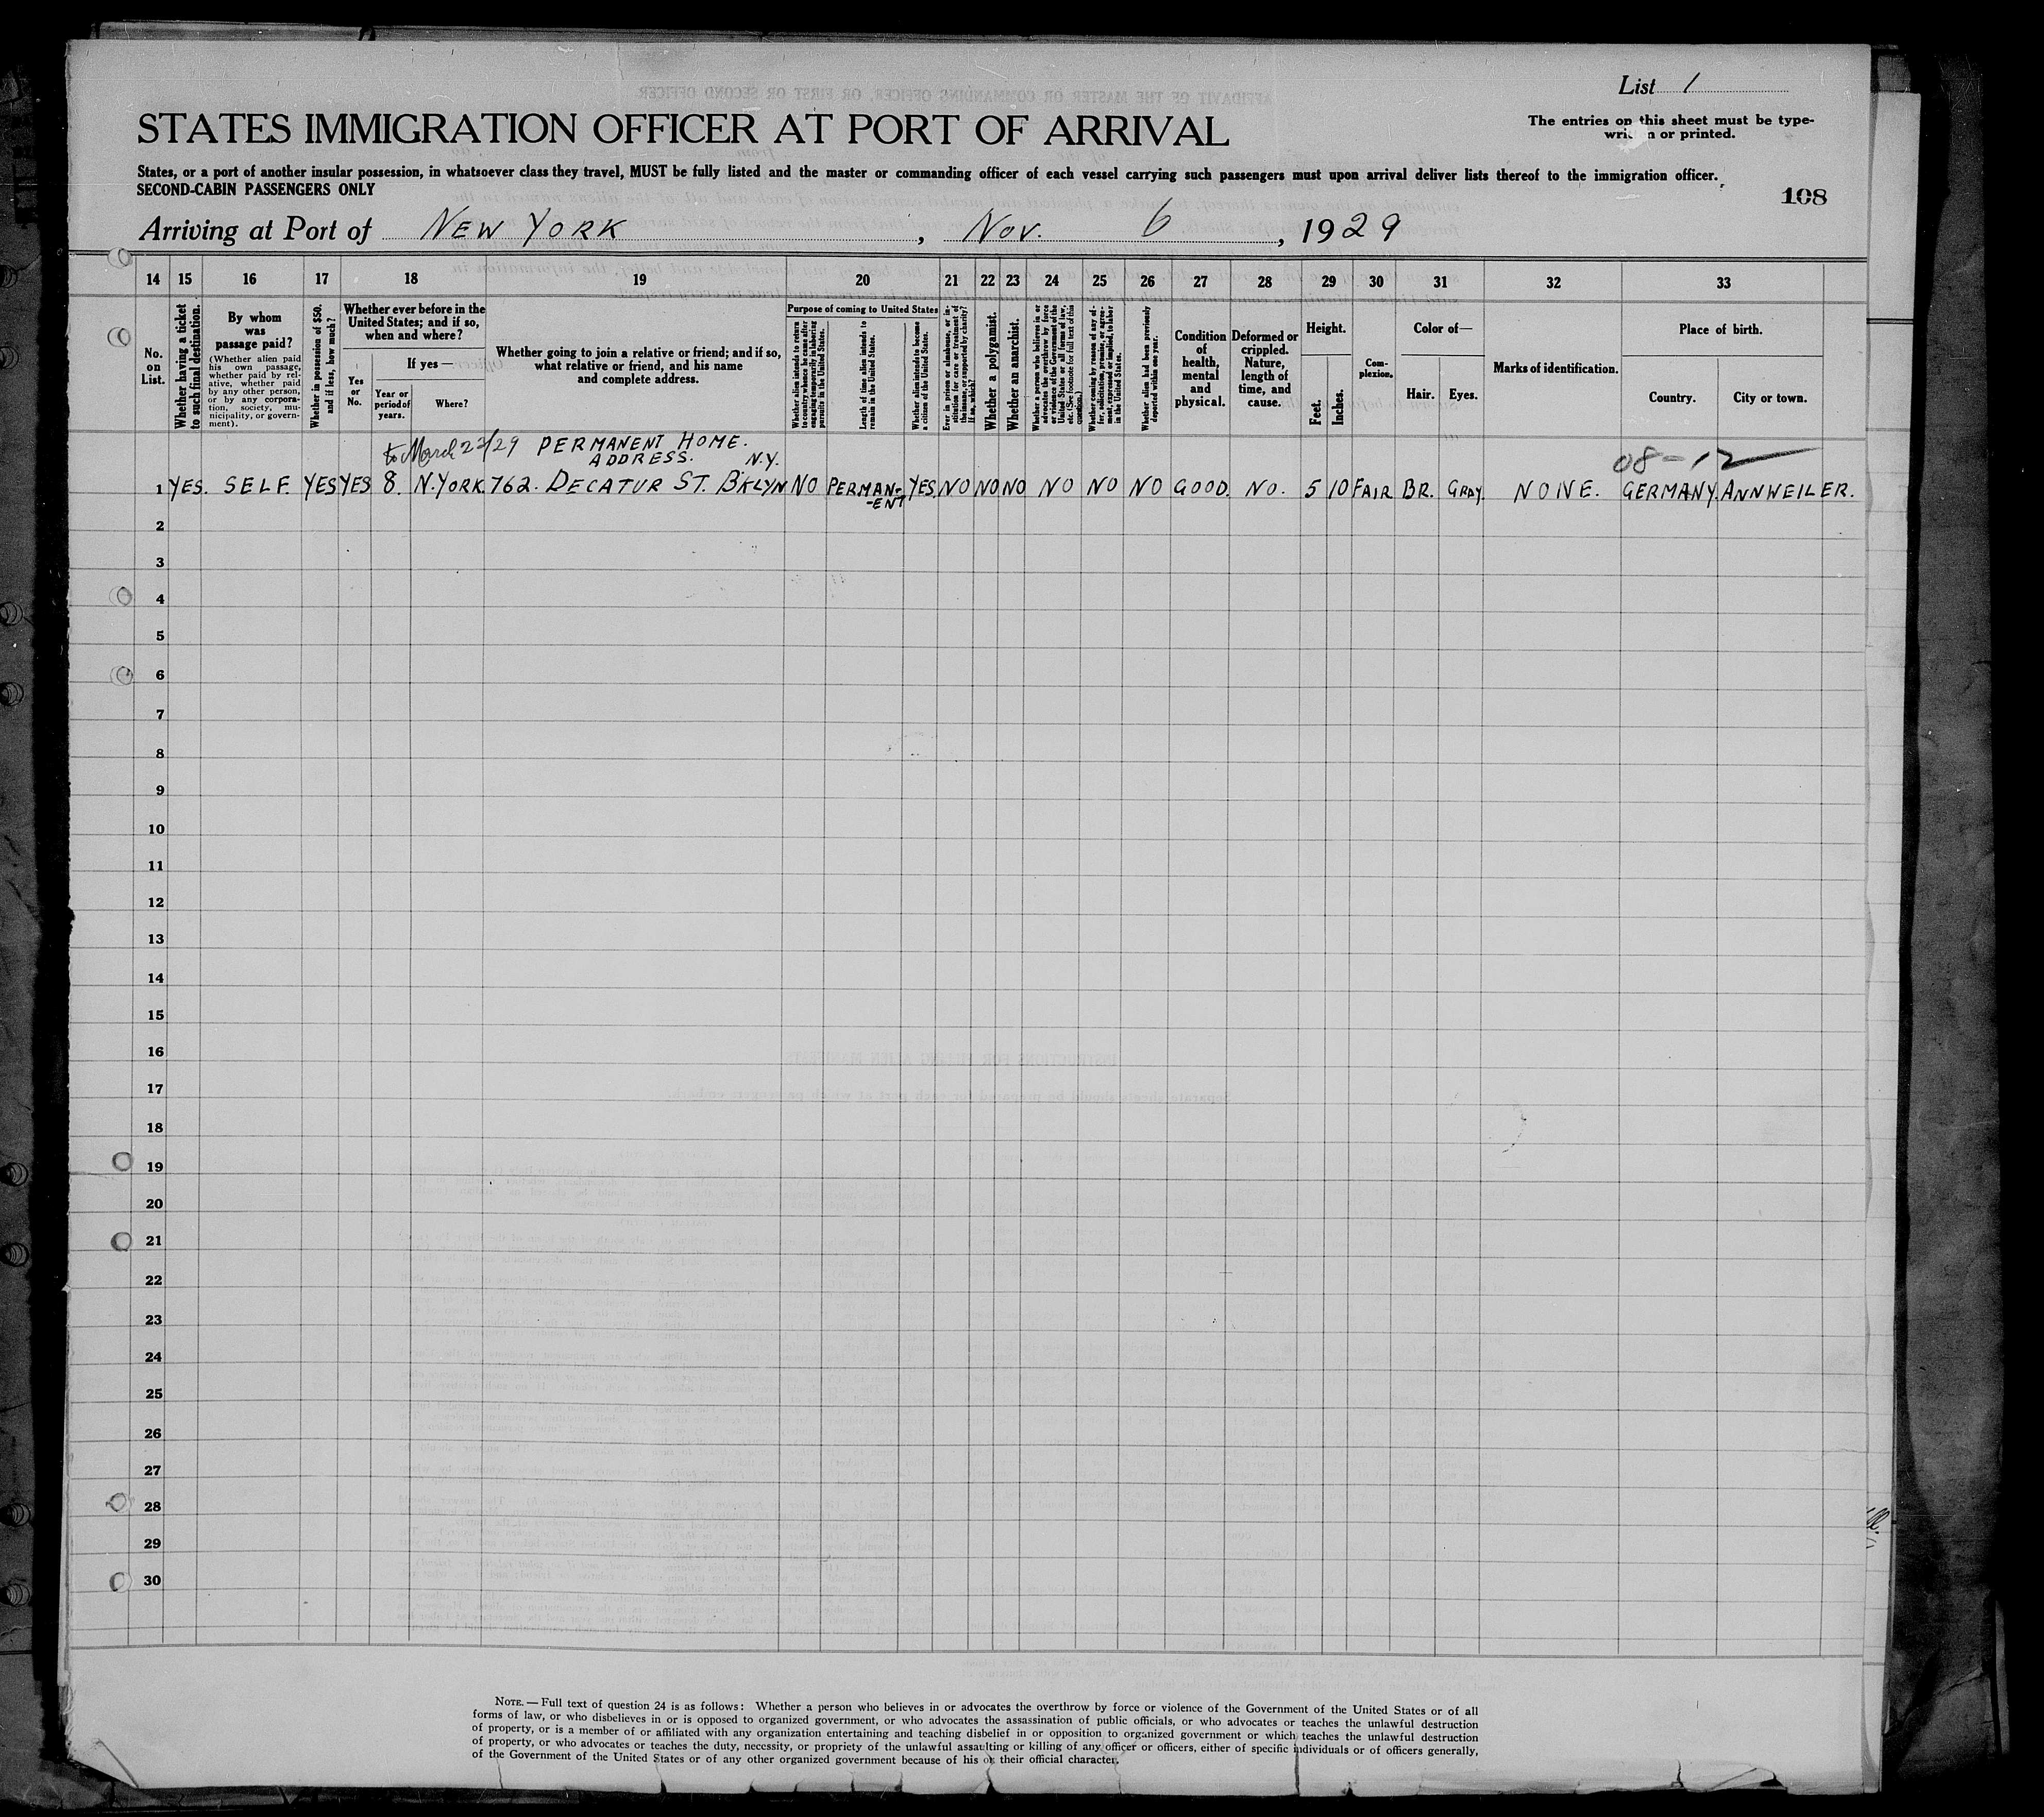 List 1
STATES IMMIGRATION OFFICER AT PORT OF ARRIVAL
The entries on this sheet must be type-
written or printed.
States, or a port of another insular possession, in whatsoever class they travel, MUST be fully listed and the master or commanding officer of each vessel carrying such passengers must upon arrival deliver lists thereof to the immigration officer.
SECOND-CABIN PASSENGERS ONLY
108
Arriving at Port of NEW YORK, Nov. 6, 1929
14 15 16 17 18 19 20 21 22 23 24 25 26 27 28 29 30 31 32 33
No.
on
List.
Whether having a ticket
to such final destination.
By whom
was
passage paid?
(Whether alien paid
his own passage,
whether paid by rel-
ative, whether paid
by any other person,
or by any corpora-
tion, society, mu-
nicipality, or govern-
ment).
Whether in possession of $50,
and if less, how much?
Whether ever before in the
United States; and if so,
when and where?
Yes
or
No.
If yes—
Year or
period of
years.
Where?
Whether going to join a relative or friend; and if so,
what relative or friend, and his name
and complete address.
Purpose of coming to United States
Whether alien intends to return
to country whence he came after
engaging temporarily in laboring
pursuits in the United States.
Length of time alien intends to
remain in the United States.
Whether alien intends to become
a citizen of the United States.
Ever in prison or almshouse, or in-
stitution for care or treatment of
the insane, or supported by charity?
If so, which?
Whether a polygamist.
Whether an anarchist.
Whether a person who believes in or
advocates the overthrow by force
or violence of the Government of the
United States or all forms of law,
etc. (See footnote for full text of this
question.)
Whether coming by reason of any of-
fer, solicitation, promise, or agree-
ment, expressed or implied, to labor
in the United States.
Whether alien had been previously
deported within one year.
Condition
of
health,
mental
and
physical.
Deformed or
crippled.
Nature,
length of
time, and
cause.
Height.
Feet.
Inches.
Com-
plexion.
Color of—
Hair.
Eyes.
Marks of identification.
Place of birth.
Country.
City or town.
to March 22/29 PERMANENT HOME.
ADDRESS. N.Y.
08-12
1 YES. SELF. YES YES 8. N.YORK. 762. DECATUR ST. BKLYN NO PERMAN-
-ENT YES. NO NO NO NO NO NO GOOD. NO. 5 10 FAIR BR. GRAY. NONE. GERMANY. ANNWEILER.
2
3
4
5
6
7
8
9
10
11
12
13
14
15
16
17
18
19
20
21
22
23
24
25
26
27
28
29
30
NOTE.—Full text of question 24 is as follows: Whether a person who believes in or advocates the overthrow by force or violence of the Government of the United States or of all
forms of law, or who disbelieves in or is opposed to organized government, or who advocates the assassination of public officials, or who advocates or teaches the unlawful destruction
of property, or is a member of or affiliated with any organization entertaining and teaching disbelief in or opposition to organized government or which teaches the unlawful destruction
of property, or who advocates or teaches the duty, necessity, or propriety of the unlawful assaulting or killing of any officer or officers, either of specific individuals or of officers generally,
of the Government of the United States or of any other organized government because of his or their official character.